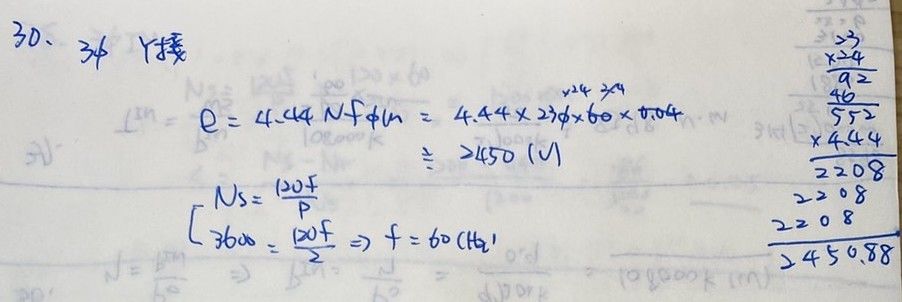 30. 3ϕ Y接
e = 4.44 N f ϕm = 4.44 × 230 × 60 × 0.04
×24 2.4
≒ 2450 (V)
Ns = 120f/P
3600 = 120f/2 => f = 60 (Hz)
23
×24
92
46
552
×4.44
2208
2208
2208
2450.88